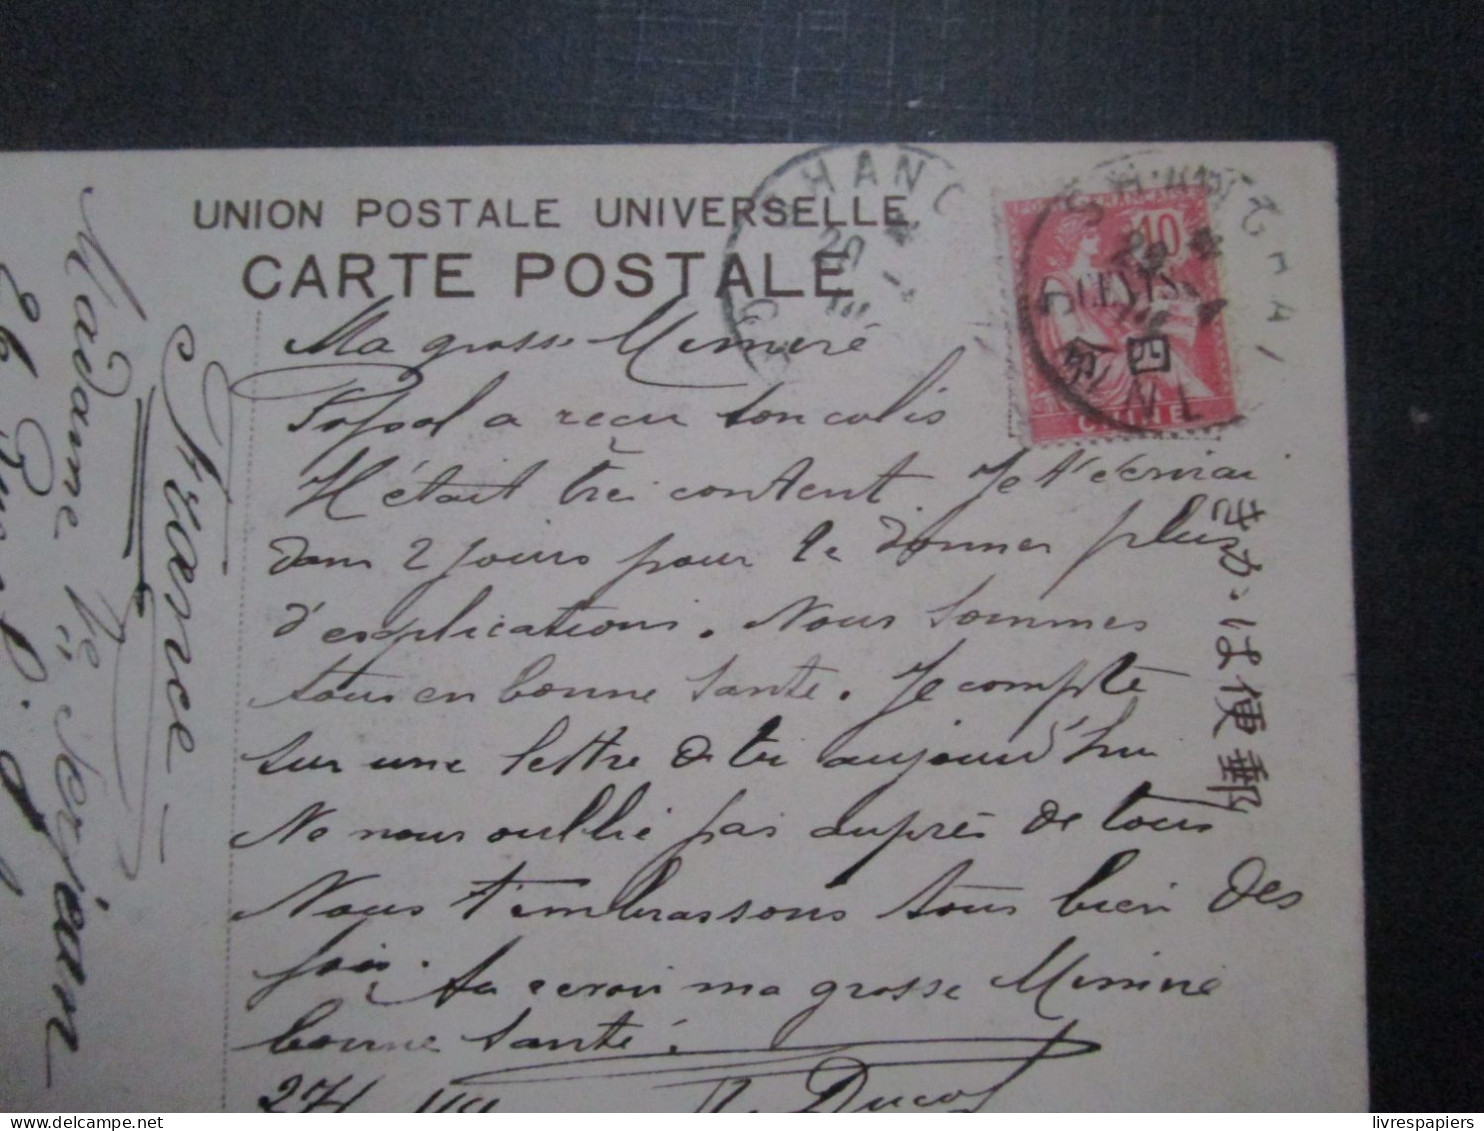 UNION POSTALE UNIVERSELLE
CARTE POSTALE
10
CENTS
CHINE
Ma grosse Mimine
a reçu son colis
Il était très content. Je t'écrirai
dans 2 jours pour te donner plus
d'explications. Nous sommes
tous en bonne santé. Je compte
sur une lettre de toi aujourd'hui
Ne nous oublie pas auprès de tous
Nous t'embrassons tous bien des
fois. ma grosse Mimine
bonne santé.
France
Madame Ve Serjean
26
郵便はかき
livrespapiers